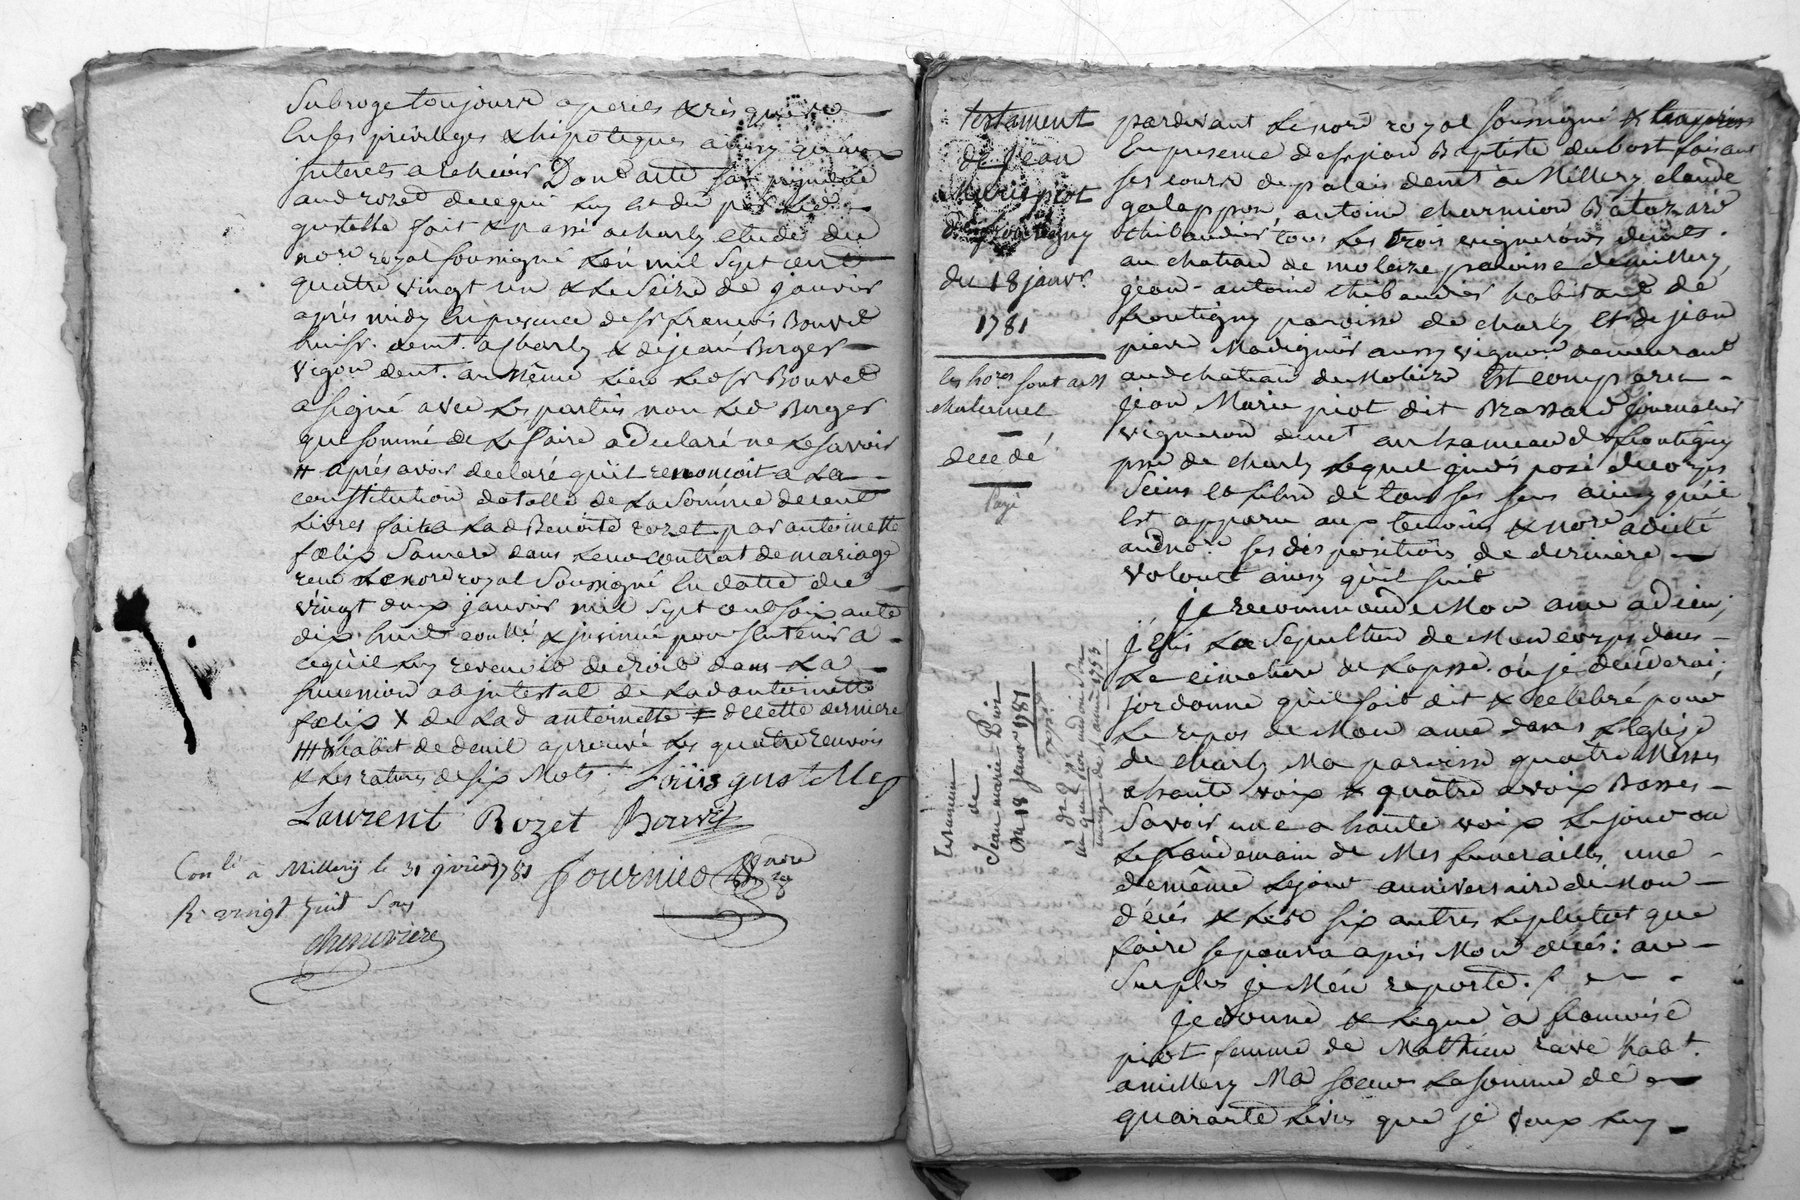 Subroge toujours a perils & risques
En ses privileges & hipoteques ainsy qu'aux
interets a echeoir Dont acte
aud rozet de ce qui luy est du par led
gustelle fait & passé a charly etude du
nore royal soussigné l'en mil sept cent
quatre vingt un & le seize de janvier
après midy En presence de sr françois Bouvet
huissr. demt. a Charly & de jean Berger
vigon demt. au Même Lieu Led sr Bouvet
a signé avec Les parties non Led Berger
qui sommé de Le faire a declaré ne Le savoir
# après avoir declaré qu'il renoncoit a La
constitution dotalle de La Somme de cent
Livres faite a Lad Benoite rozet par antoinette
fœlix Sa mere dans Leur contrat de mariage
recu Le nore royal Soussigné En datte du
vingt deux janvier mil sept cent soixante
dix huit controllé & insinué pour s'en tenir a
ce qu'il luy revenoit de droit dans La
succession ab intestat de Lad antoinette
fœlix X de Lad antoinette ‡ de cette derniere
habit de deuil aprouvé Les quatre renvois
& Les ratures de six Mots
Loüis gustelle
Laurent Rozet Bouvet
Conlé à Millery le 31 jvier 1781 fournier nore
R. vingt huit Sous
chenevriere
testament
de Jean
Marie piot
de frontigny
du 18 janvr.
1781
les hores sont a M
chaternet
decedé
Payé
Testament
de
Jean marie Pivi
Du 18 Janvr 1781
Expé.
pardevant Le nore royal soussigné &
En presence de sr jean Baptiste dubost faisant
ses cours de palais demt a Millery claude
galappon, antoine charmion Batozard
thibaudier tous Les trois vignerons demts.
au chateau de moleize paroisse de millery,
jean-antoine thibaudier habitant de
frontigny paroisse de charly Et de jean
pierre Madignier aussy vignon demeurant
aud chateau de Moleize Est comparu
jean Marie piot dit Brassard journalier
vigneron demt au hameau de frontigny
psse de charly Lequel
Sens Et Libre de tous ses sens ainsy qu'il
Est apparu aux temoins & nore a dicté
aud nore ses dispositions de derniere
volonté ainsy qu'il suit
Je recommande Mon ame a Dieu;
j'élis La Sepulture de Mon corps dans
Le cimetiere de La psse. où je decéderai.
j'ordonne qu'il soit dit & celebré pour
Le repos de Mon ame dans L'Eglise
de charly Ma paroisse quatre Messes
a haute voix & quatre a voix Basses
Savoir une a haute voix Le jour ou
Le Landemain de Mes funerailles, une
de même Le jour anniversaire de Mon
décés & Les six autres Le plutot que
faire se pourra après Mon décés: au
Surplus je M'en raporte.
je donne & Legue à françoise
piot femme de Mathieu rave habt.
a millery Ma Sœur La somme de
quarante Livres que je veux Luy